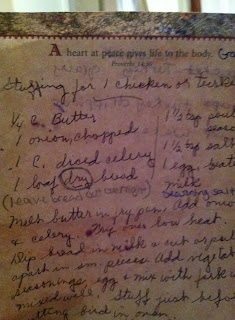 A heart at peace gives life to the body.
Proverbs 14:30
Stuffing for 1 chicken or turke
¼ C. Butter 1 tsp poul
1 onion, chopped seas
1 C. diced celery 1½ tsp salt
1 loaf dry bread 1 egg, beate
(leave bread out milk
seasoning salt
Melt butter in fry pan. Add onio
& celery. Fry over low heat.
Dip bread in milk & cut or pull
apart in sm. pieces. Add vegetab
seasonings, egg & mix with fork u
mixed well. Stuff just befor
tting bird in oven.